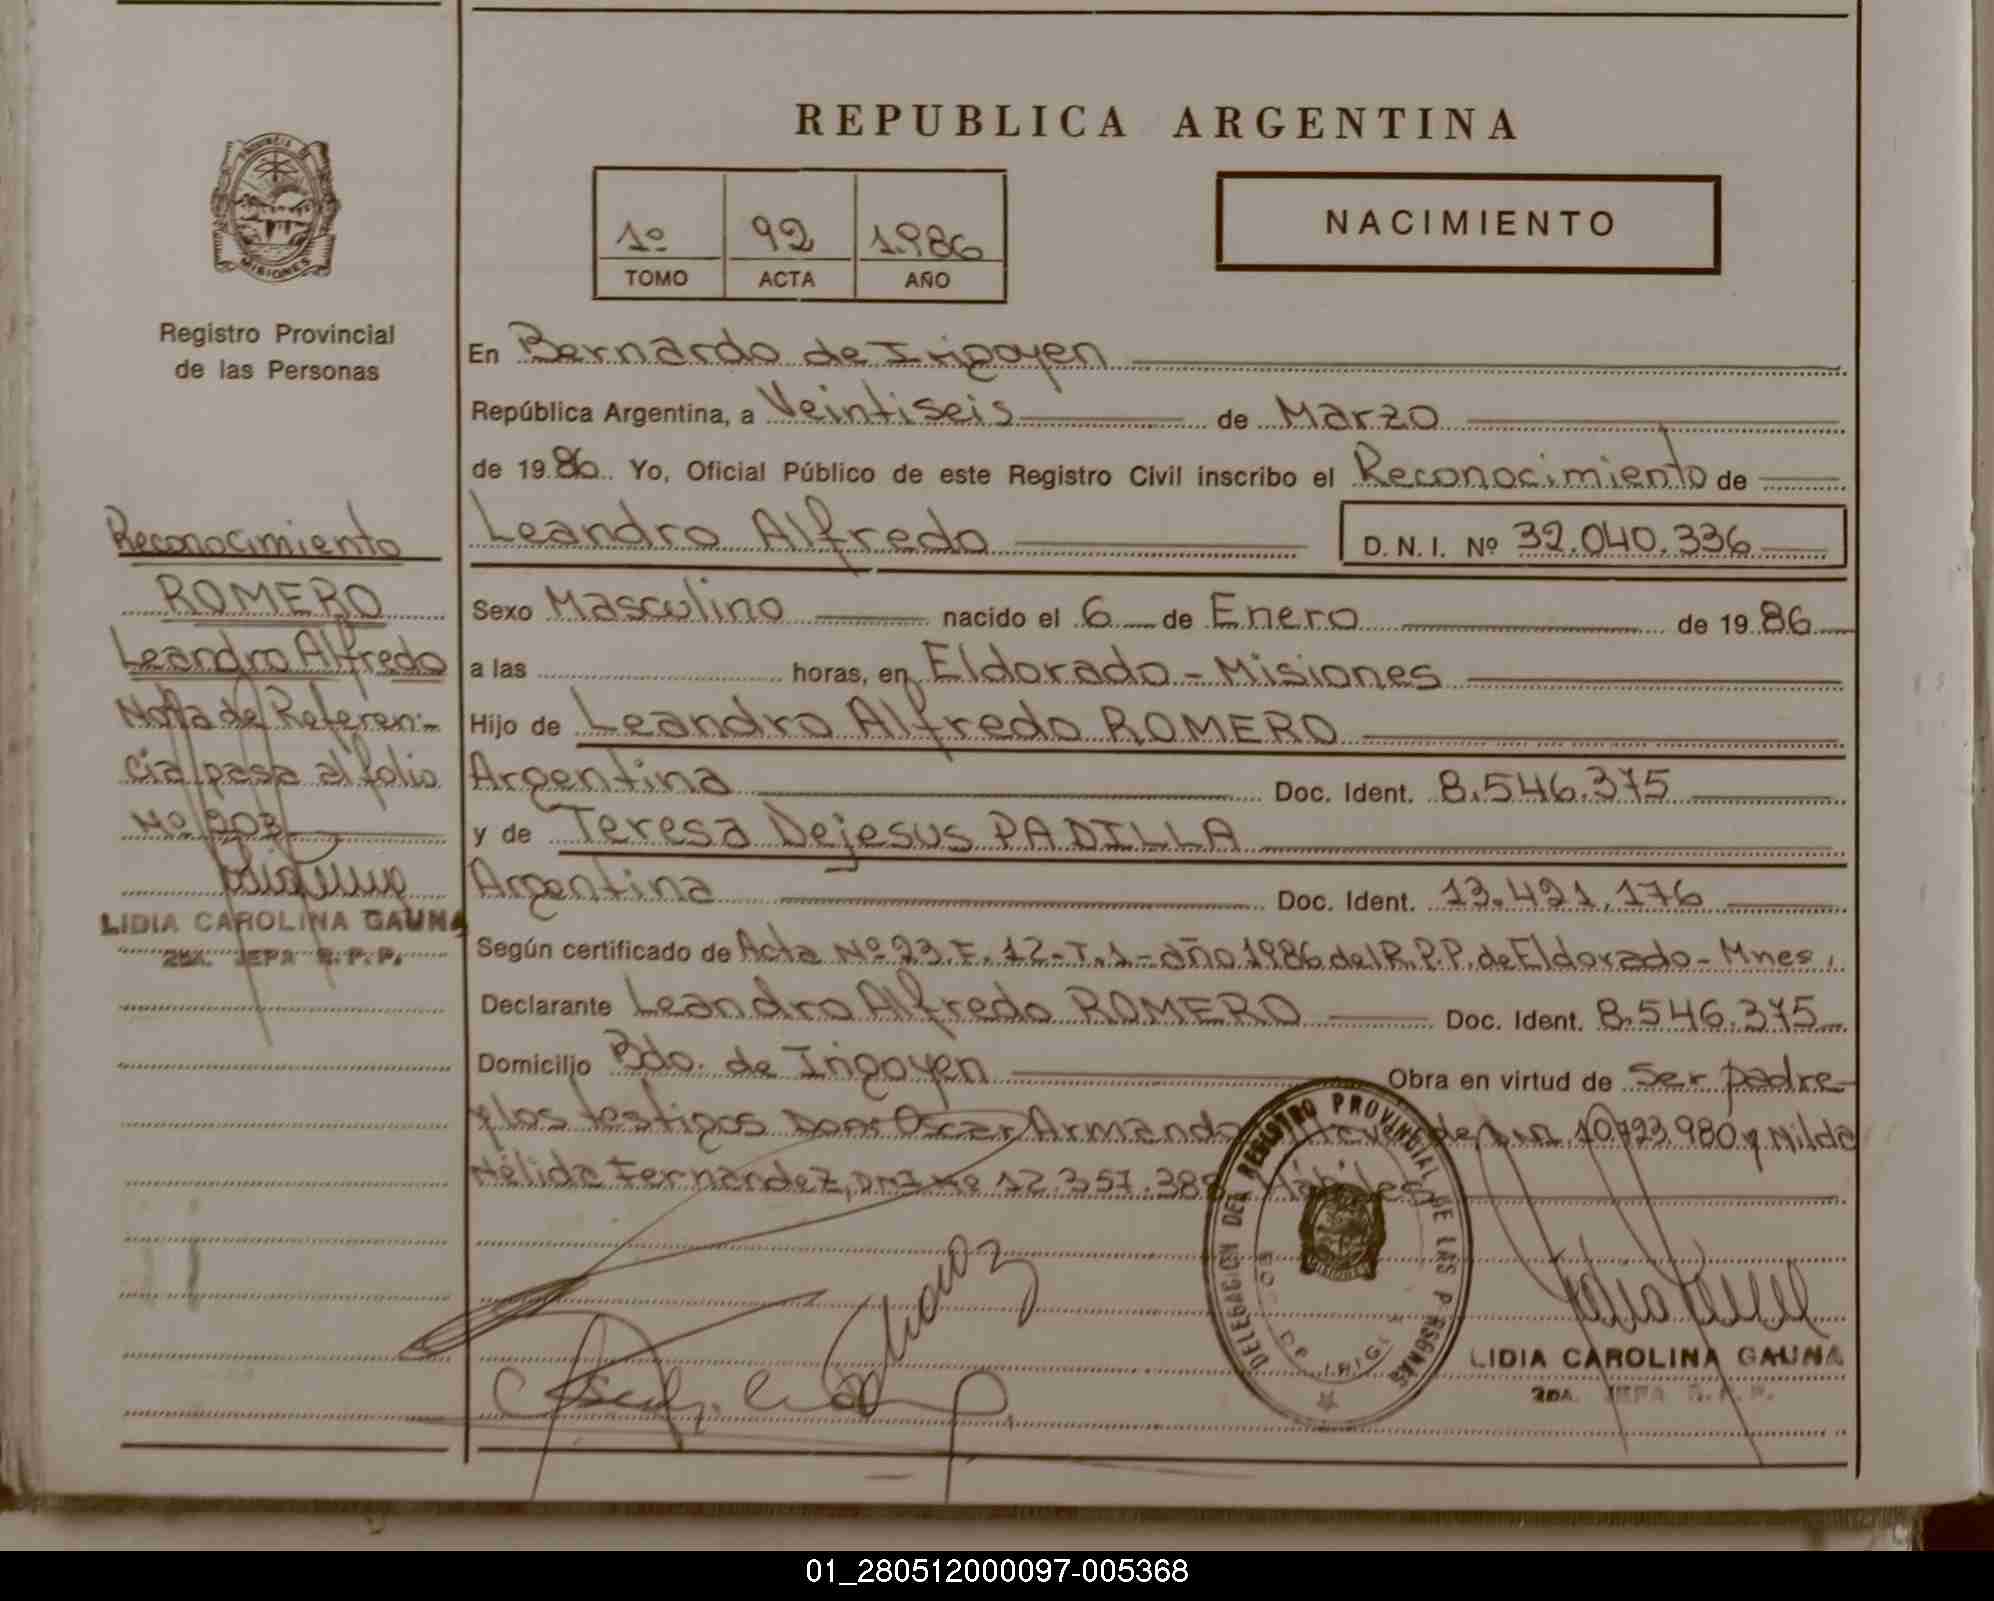 REPUBLICA ARGENTINA
PROVINCIA DE
MISIONES
Registro Provincial
de las Personas
1º 92 1986
TOMO ACTA AÑO
NACIMIENTO
En Bernardo de Irigoyen
República Argentina, a Veintiseis de Marzo
de 1986. Yo, Oficial Público de este Registro Civil inscribo el Reconocimiento de
Leandro Alfredo
D.N.I. Nº 32.040.336
Sexo Masculino nacido el 6 de Enero de 1986
a las horas, en Eldorado - Misiones
Hijo de Leandro Alfredo ROMERO
Argentina Doc. Ident. 8.546.375
y de Teresa Dejesus PADILLA
Argentina Doc. Ident. 13.421.176
Según certificado de Acta Nº 23.F.12-T.1-año 1986 del R.P.P. de Eldorado - Mnes.
Declarante Leandro Alfredo ROMERO Doc. Ident. 8.546.375
Domicilio Bdo. de Irigoyen Obra en virtud de Ser padre
y los testigos Oscar Armando 10.723.980 y Nilda
Nélida Fernandez, DNI Nº 12.357.38 Hábiles
Reconocimiento
ROMERO
Leandro Alfredo
Nota de Referen-
cia pasa al folio
Nº 203
LIDIA CAROLINA GAUNA
2DA. JEFA R.P.P.
DELEGACION DEL REGISTRO PROVINCIAL DE LAS PERSONAS
BDO. DE IRIG.
MISIONES
LIDIA CAROLINA GAUNA
2DA. JEFA R.P.P.
01_280512000097-005368